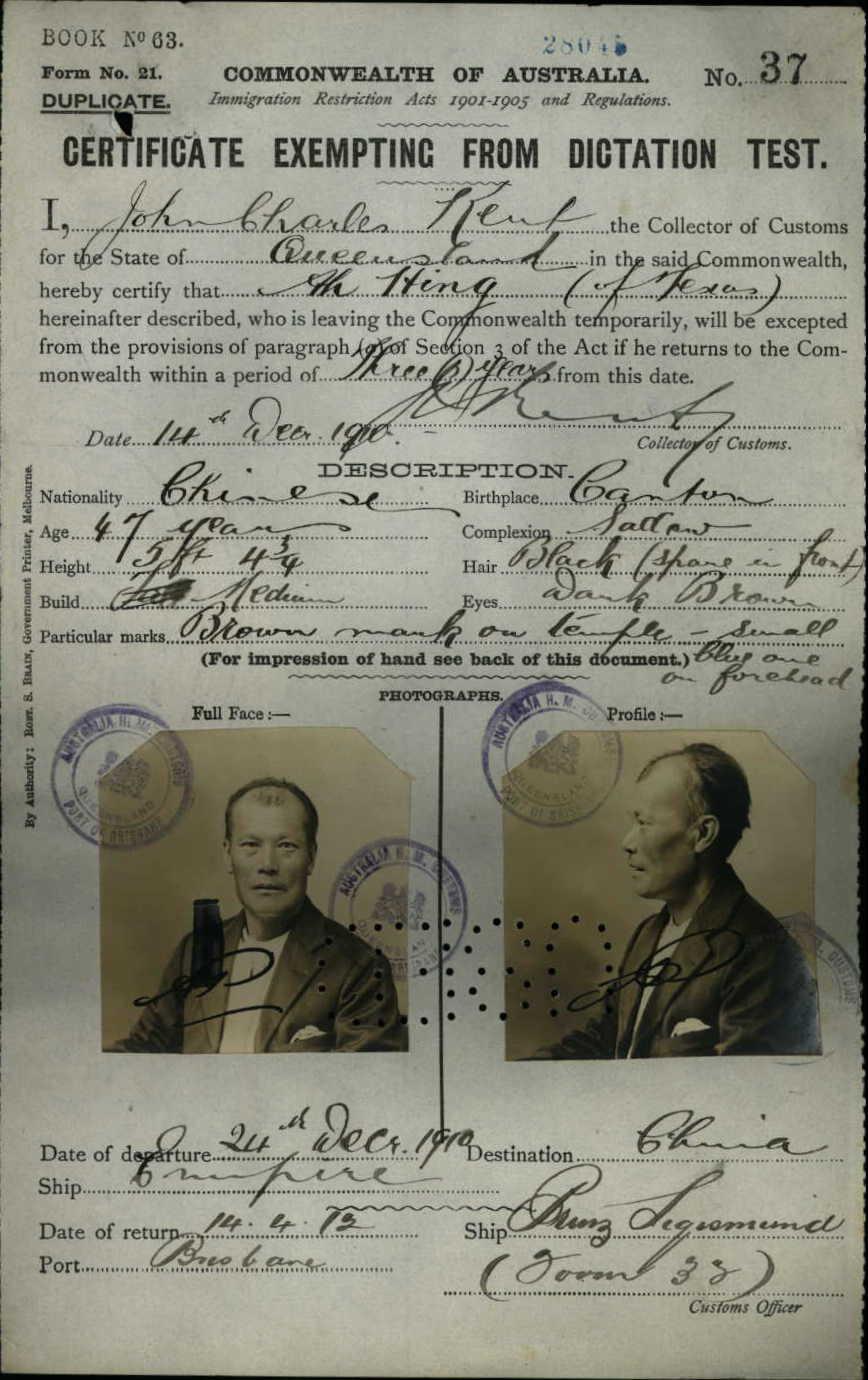 BOOK Nº 63.
28045
Form No. 21.
COMMONWEALTH OF AUSTRALIA.
No. 37
DUPLICATE.
Immigration Restriction Acts 1901-1905 and Regulations.
CERTIFICATE EXEMPTING FROM DICTATION TEST.
I, John Charles Kent the Collector of Customs
for the State of Queensland in the said Commonwealth,
hereby certify that Ah Hing (of Texas)
hereinafter described, who is leaving the Commonwealth temporarily, will be excepted
from the provisions of paragraph (a) of Section 3 of the Act if he returns to the Com-
monwealth within a period of Three (3) years from this date.
Date 14th Decr. 1910. Kent
Collector of Customs.
DESCRIPTION.
Nationality Chinese Birthplace Canton
Age 47 years Complexion Sallow
Height 5 ft 4¾ Hair Black (sparse in front)
Build Medium Eyes Dark Brown
Particular marks Brown mark on temple - small
(For impression of hand see back of this document.) blue one
on forehead
PHOTOGRAPHS.
Full Face :— Profile :—
AUSTRALIA H. M. CUSTOMS
QUEENSLAND
PORT OF BRISBANE
AUSTRALIA H. M. CUSTOMS
QUEENSLAND
PORT OF BRISBANE
AUSTRALIA H. M. CUSTOMS
Date of departure 24th Decr. 1910 Destination China
Ship Empire
Date of return 14. 4. 12 Ship Prinz Sigismund
Port Brisbane (Form 32)
Customs Officer
By Authority: ROBT. S. BRAIN, Government Printer, Melbourne.